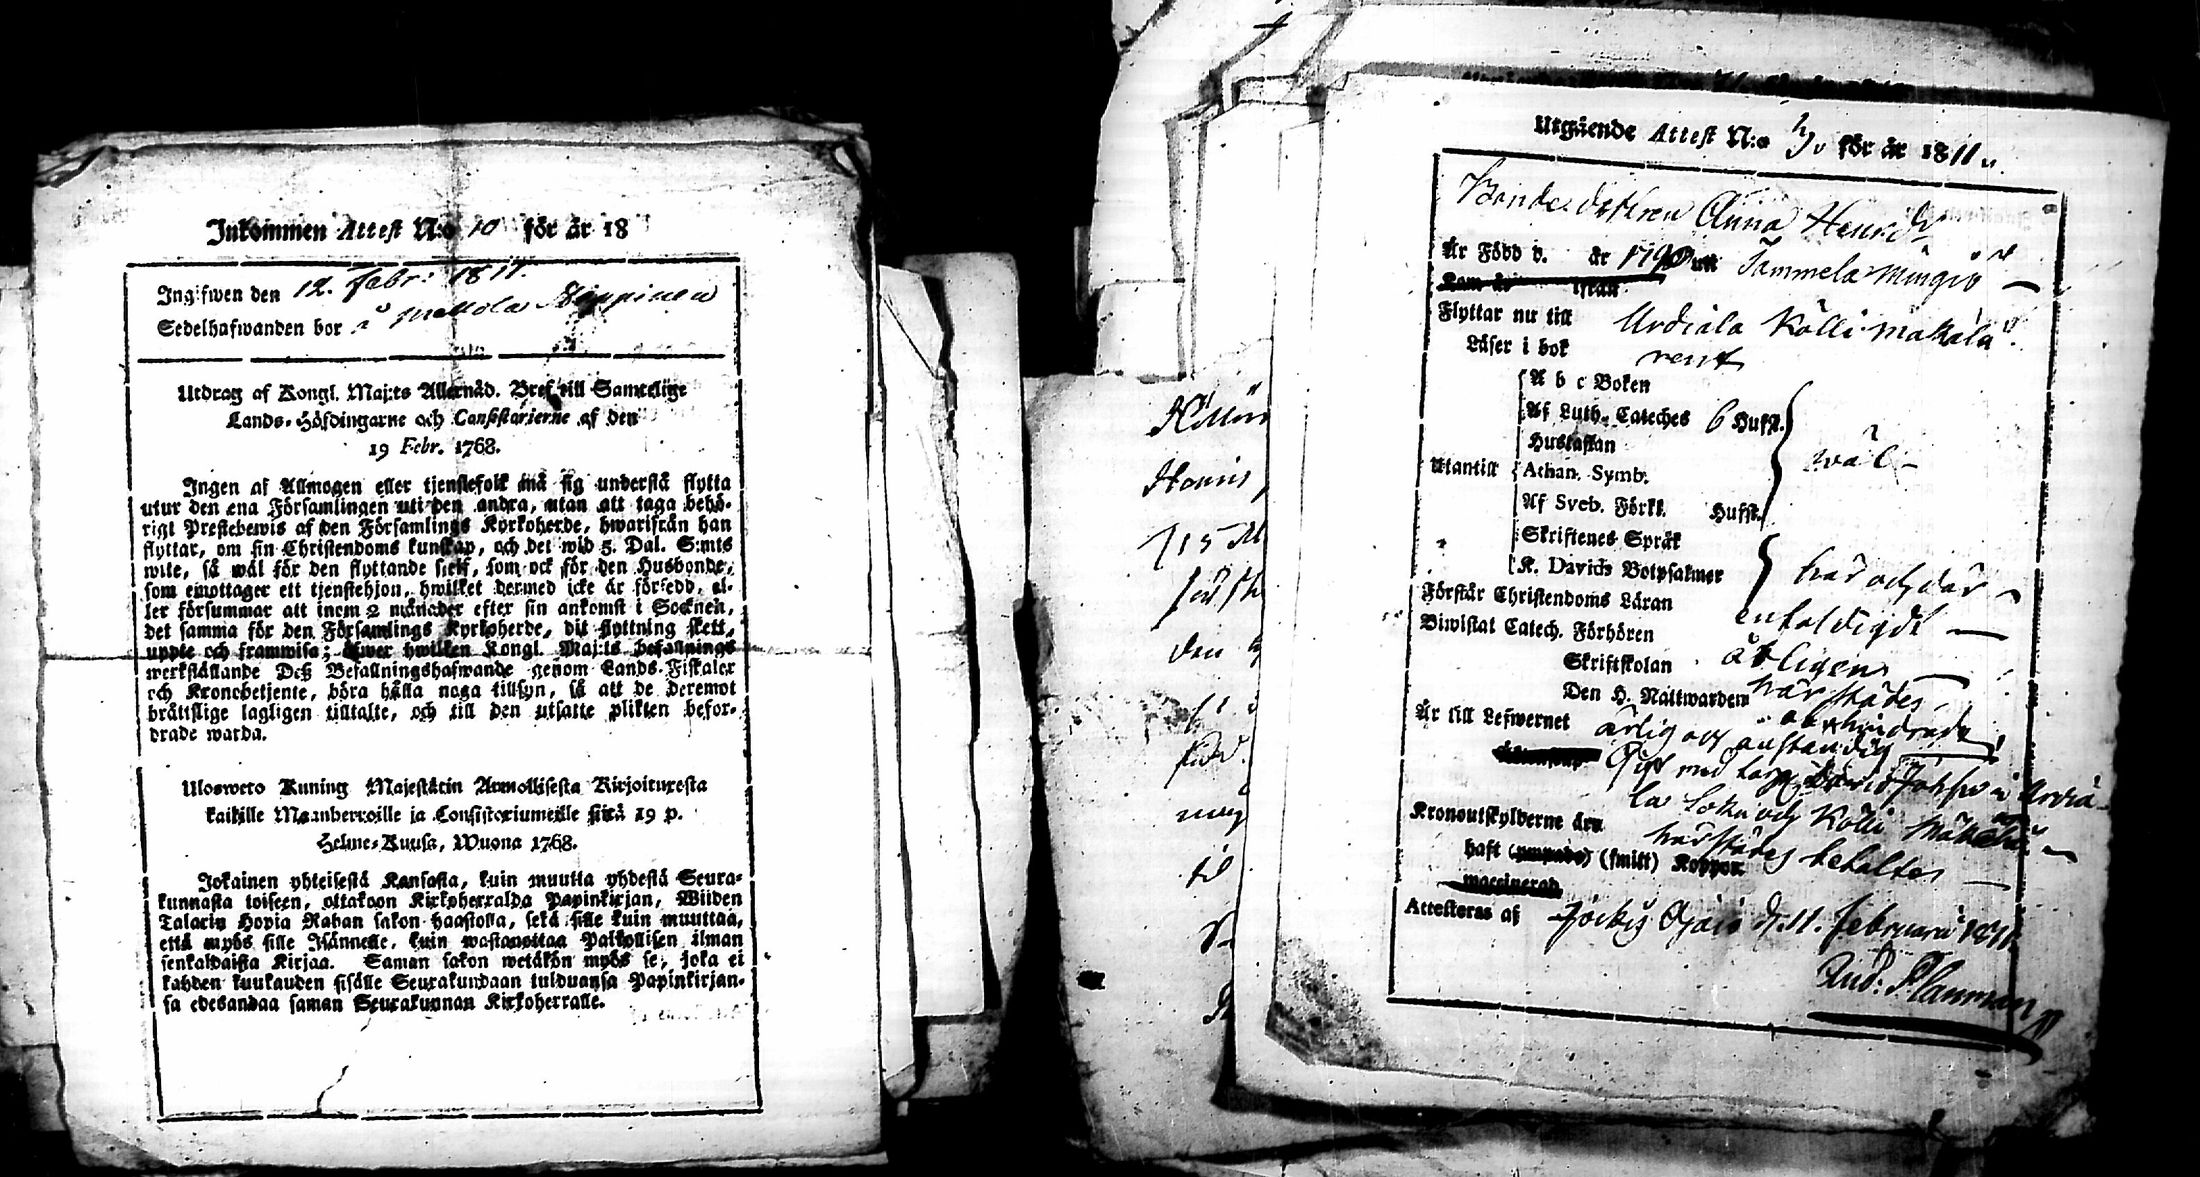 Inkommen Attest N:o 10 för år 18
Ingifwen den 12. Febr: 1811.
Sedelhafwanden bor å
Utdrag af Kongl. Maj:ts Allernåd. Bref till Samtelige
Lands-Höfdingarne och Consistorierne af den
19 Febr. 1768.
Ingen af Allmogen eller tjenstefolk må sig understå flytta
utur den ena Församlingen uti den andra, utan att taga behö-
rigt Prestebewis af den Församlings Kyrkoherde, hwarifrån han
flyttar, om sin Christendoms kunskap, och det wid 5. Dal. S:mts
wite, så wäl för den flyttande sjelf, som ock för den Husbonde,
som emottager ett tjenstehjon, hwilket dermed icke är försedd, el-
ler försummar att inom 2 månader efter sin ankomst i Socknen,
det samma för den Församlings Kyrkoherde, dit flyttning skett,
uppte och framwisa; öfwer hwilken Kongl. Maj:ts befallnings
werkställande Deß Befallningshafwande genom Lands-Fiskaler
och Kronobetjente, böra hålla noga tillsyn, så att de deremot
bråttslige lagligen tilltalte, och till den utsatte plikten befor-
drade warda.
Ulosweto Kuning Majestätin Armollisesta Kirjoituxesta
kaikille Maanherroille ja Consistoriumeille siitä 19 p.
Helme-Kuusa, Wuona 1768.
Jokainen yhteisestä Kansasta, kuin muutta yhdestä Seura-
kunnasta toiseen, ottakoon Kirkoherralda Papinkirjan, Wiiden
Talarin Hopia Rahan sakon haastolla, sekä sille kuin muuttaa,
että myös sille Isännelle, kuin wastanottaa Palkollisen ilman
senkaldaista Kirjaa. Saman sakon wetäkön myös se, joka ei
kahden kuukauden sisälle Seurakundaan tulduansa Papinkirjan-
sa edesandaa saman Seurakunnan Kirkoherralle.
Utgående Attest N:o för år 1811
Bonde dottren Anna Henrdr
Är Född d. år 1790 uti Tammela Mingiö
Flyttar nu till Urdiala Kölli Makala
Läser i bok rent
A b c Boken
Af Luth. Cateches 6 Hufst.
Hustaflan
Utantill Athan. Symb. wäl
Af Sveb. Förkl. Hufst.
Skriftenes Språk
K. Davids Botpsalmer här och där
Förstår Christendoms Läran enfaldigdt
Biwistat Catech. Förhören
Skriftskolan årligen
Den H. Nattwarden härstädes
Är till Lefwernet ärlig och anständig obehindrad
Gift med David Johsson i Urdia-
la Sokn och Kölli
Kronoutskylderne äro härstädes betaltes
haft (smitt) Koppor
Attesteras af Jockis d. 11. Februarii 1811
And: Planman